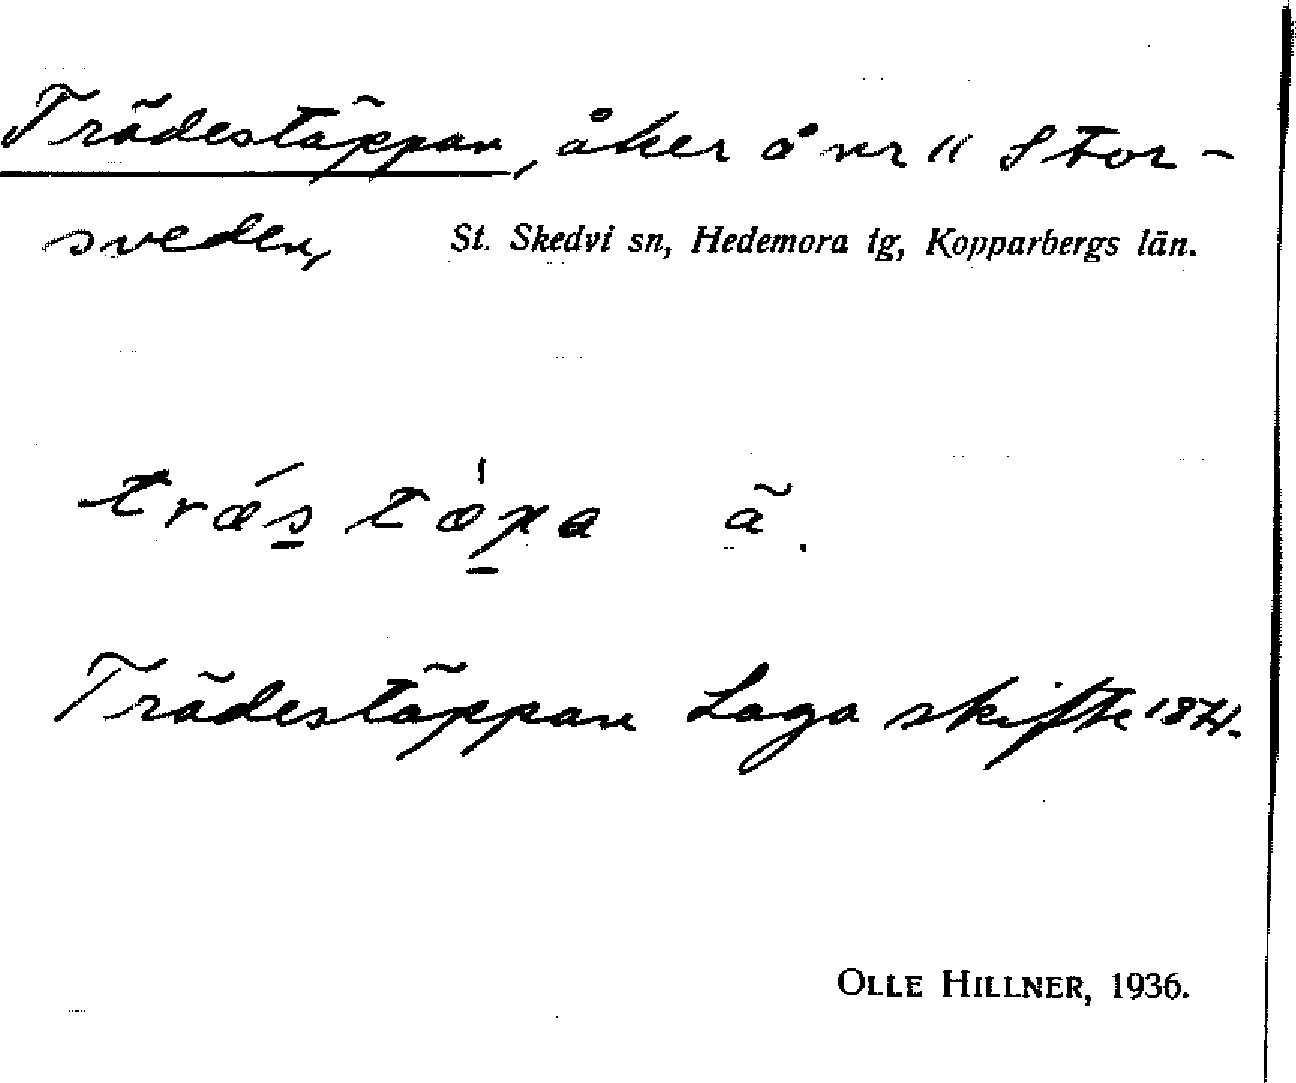 Trädestäppan, åker å nr 11 Stor-
sveden, St. Skedvi sn, Hedemora tg, Kopparbergs län.
træ´s tæ`pa ã.
Trädestäppan Laga skifte
OLLE HILLNER, 1936.